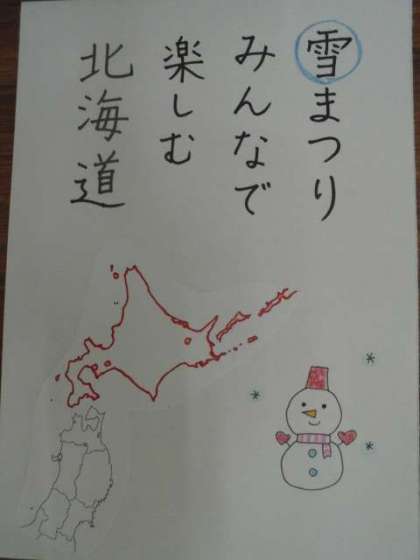 雪まつり
みんなで
楽しむ
北海道